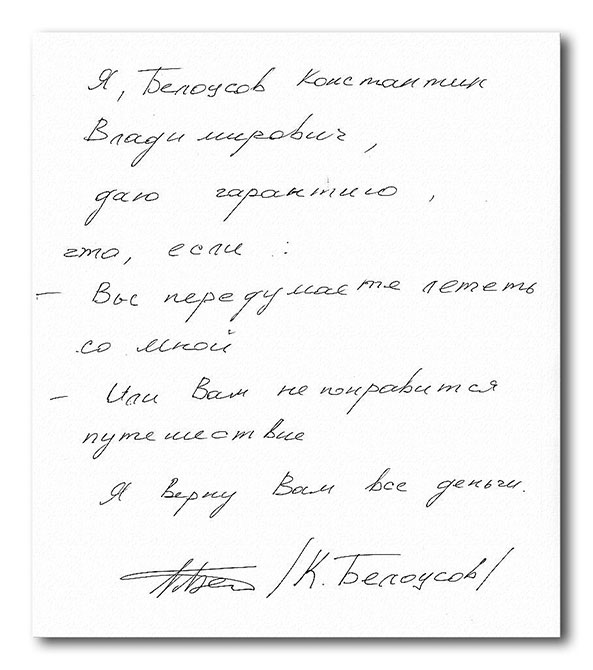 Я, Белоусов Константин
Владимирович,
даю гарантию,
что, если :
- Вы передумаете лететь
со мной
- Или Вам не понравится
путешествие
Я верну Вам все деньги.
/К. Белоусов/